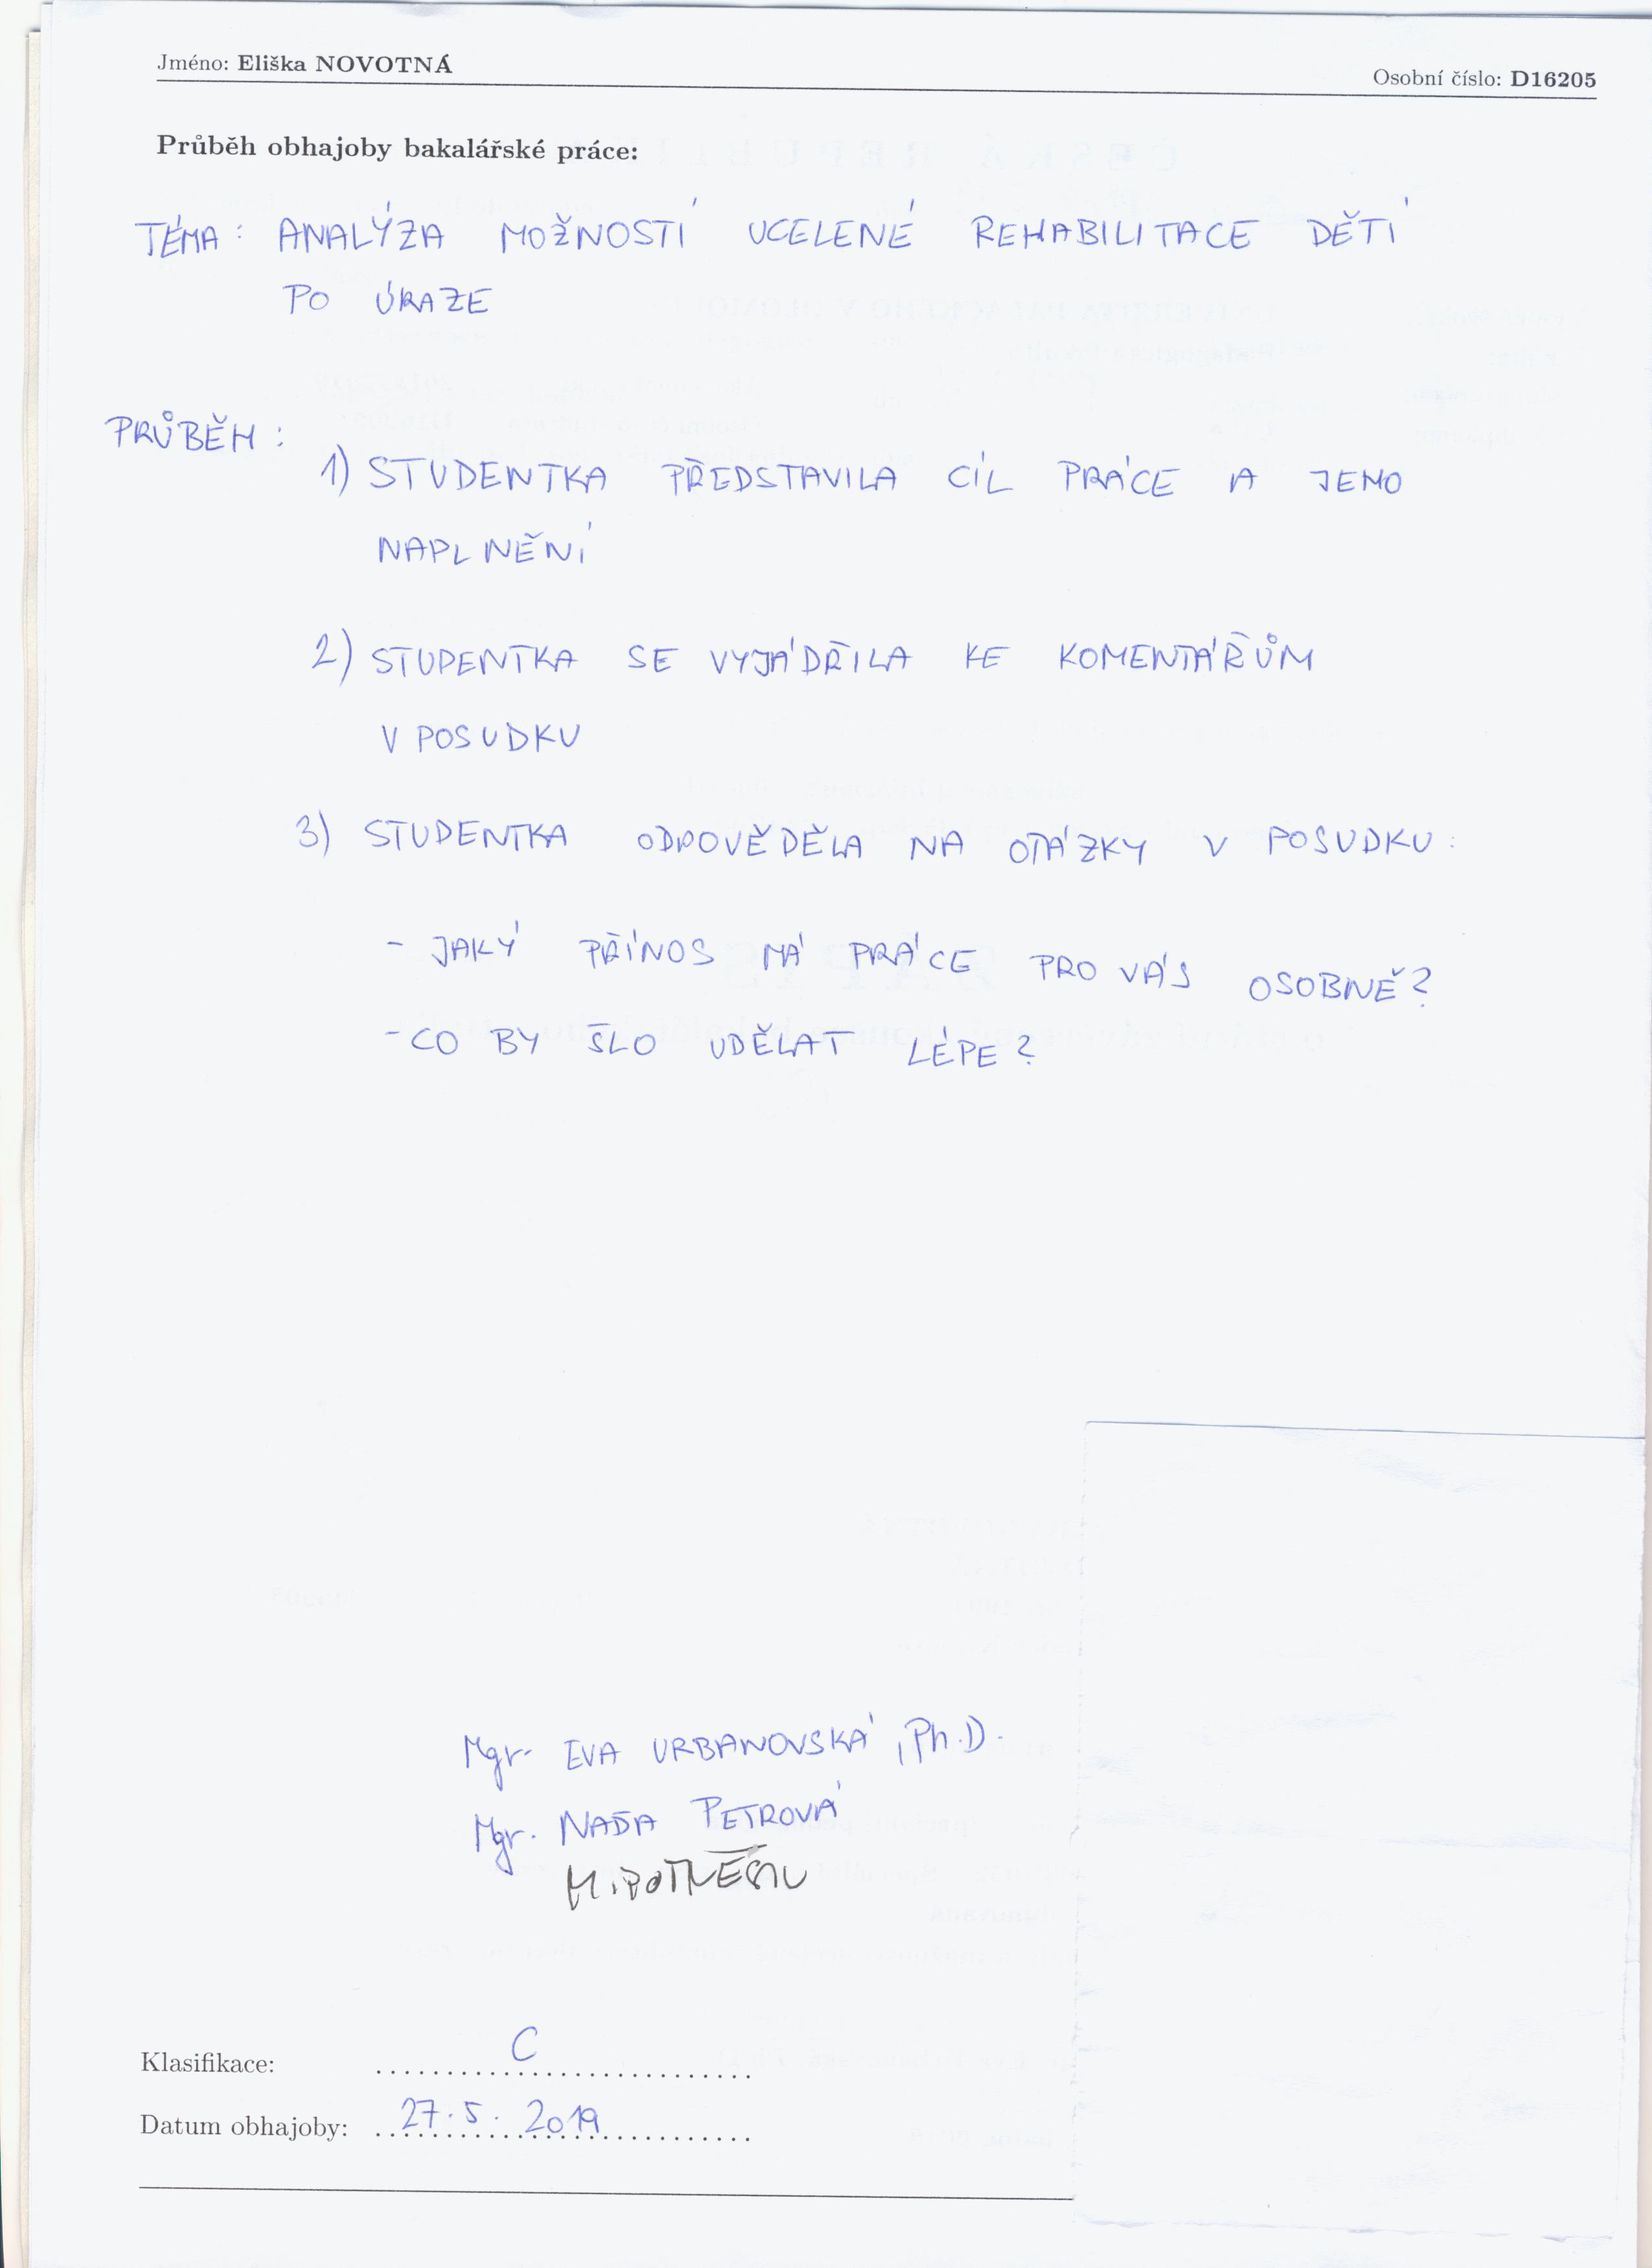 Jméno: Eliška NOVOTNÁ
Osobní číslo: D16205
Průběh obhajoby bakalářské práce:
TÉMA: ANALÝZA MOŽNOSTÍ UCELENÉ REHABILITACE DĚTÍ
PO ÚRAZE
PRŮBĚH:
1) STUDENTKA PŘEDSTAVILA CÍL PRÁCE A JEHO
NAPLNĚNÍ
2) STUDENTKA SE VYJÁDŘILA KE KOMENTÁŘŮM
V POSUDKU
3) STUDENTKA ODPOVĚDĚLA NA OTÁZKY V POSUDKU:
- JAKÝ PŘÍNOS MÁ PRÁCE PRO VÁS OSOBNĚ?
- CO BY ŠLO UDĚLAT LÉPE?
Mgr. EVA URBANOVSKÁ, Ph.D.
Mgr. NAĎA PETROVÁ
Klasifikace: C
Datum obhajoby: 27.5.2019